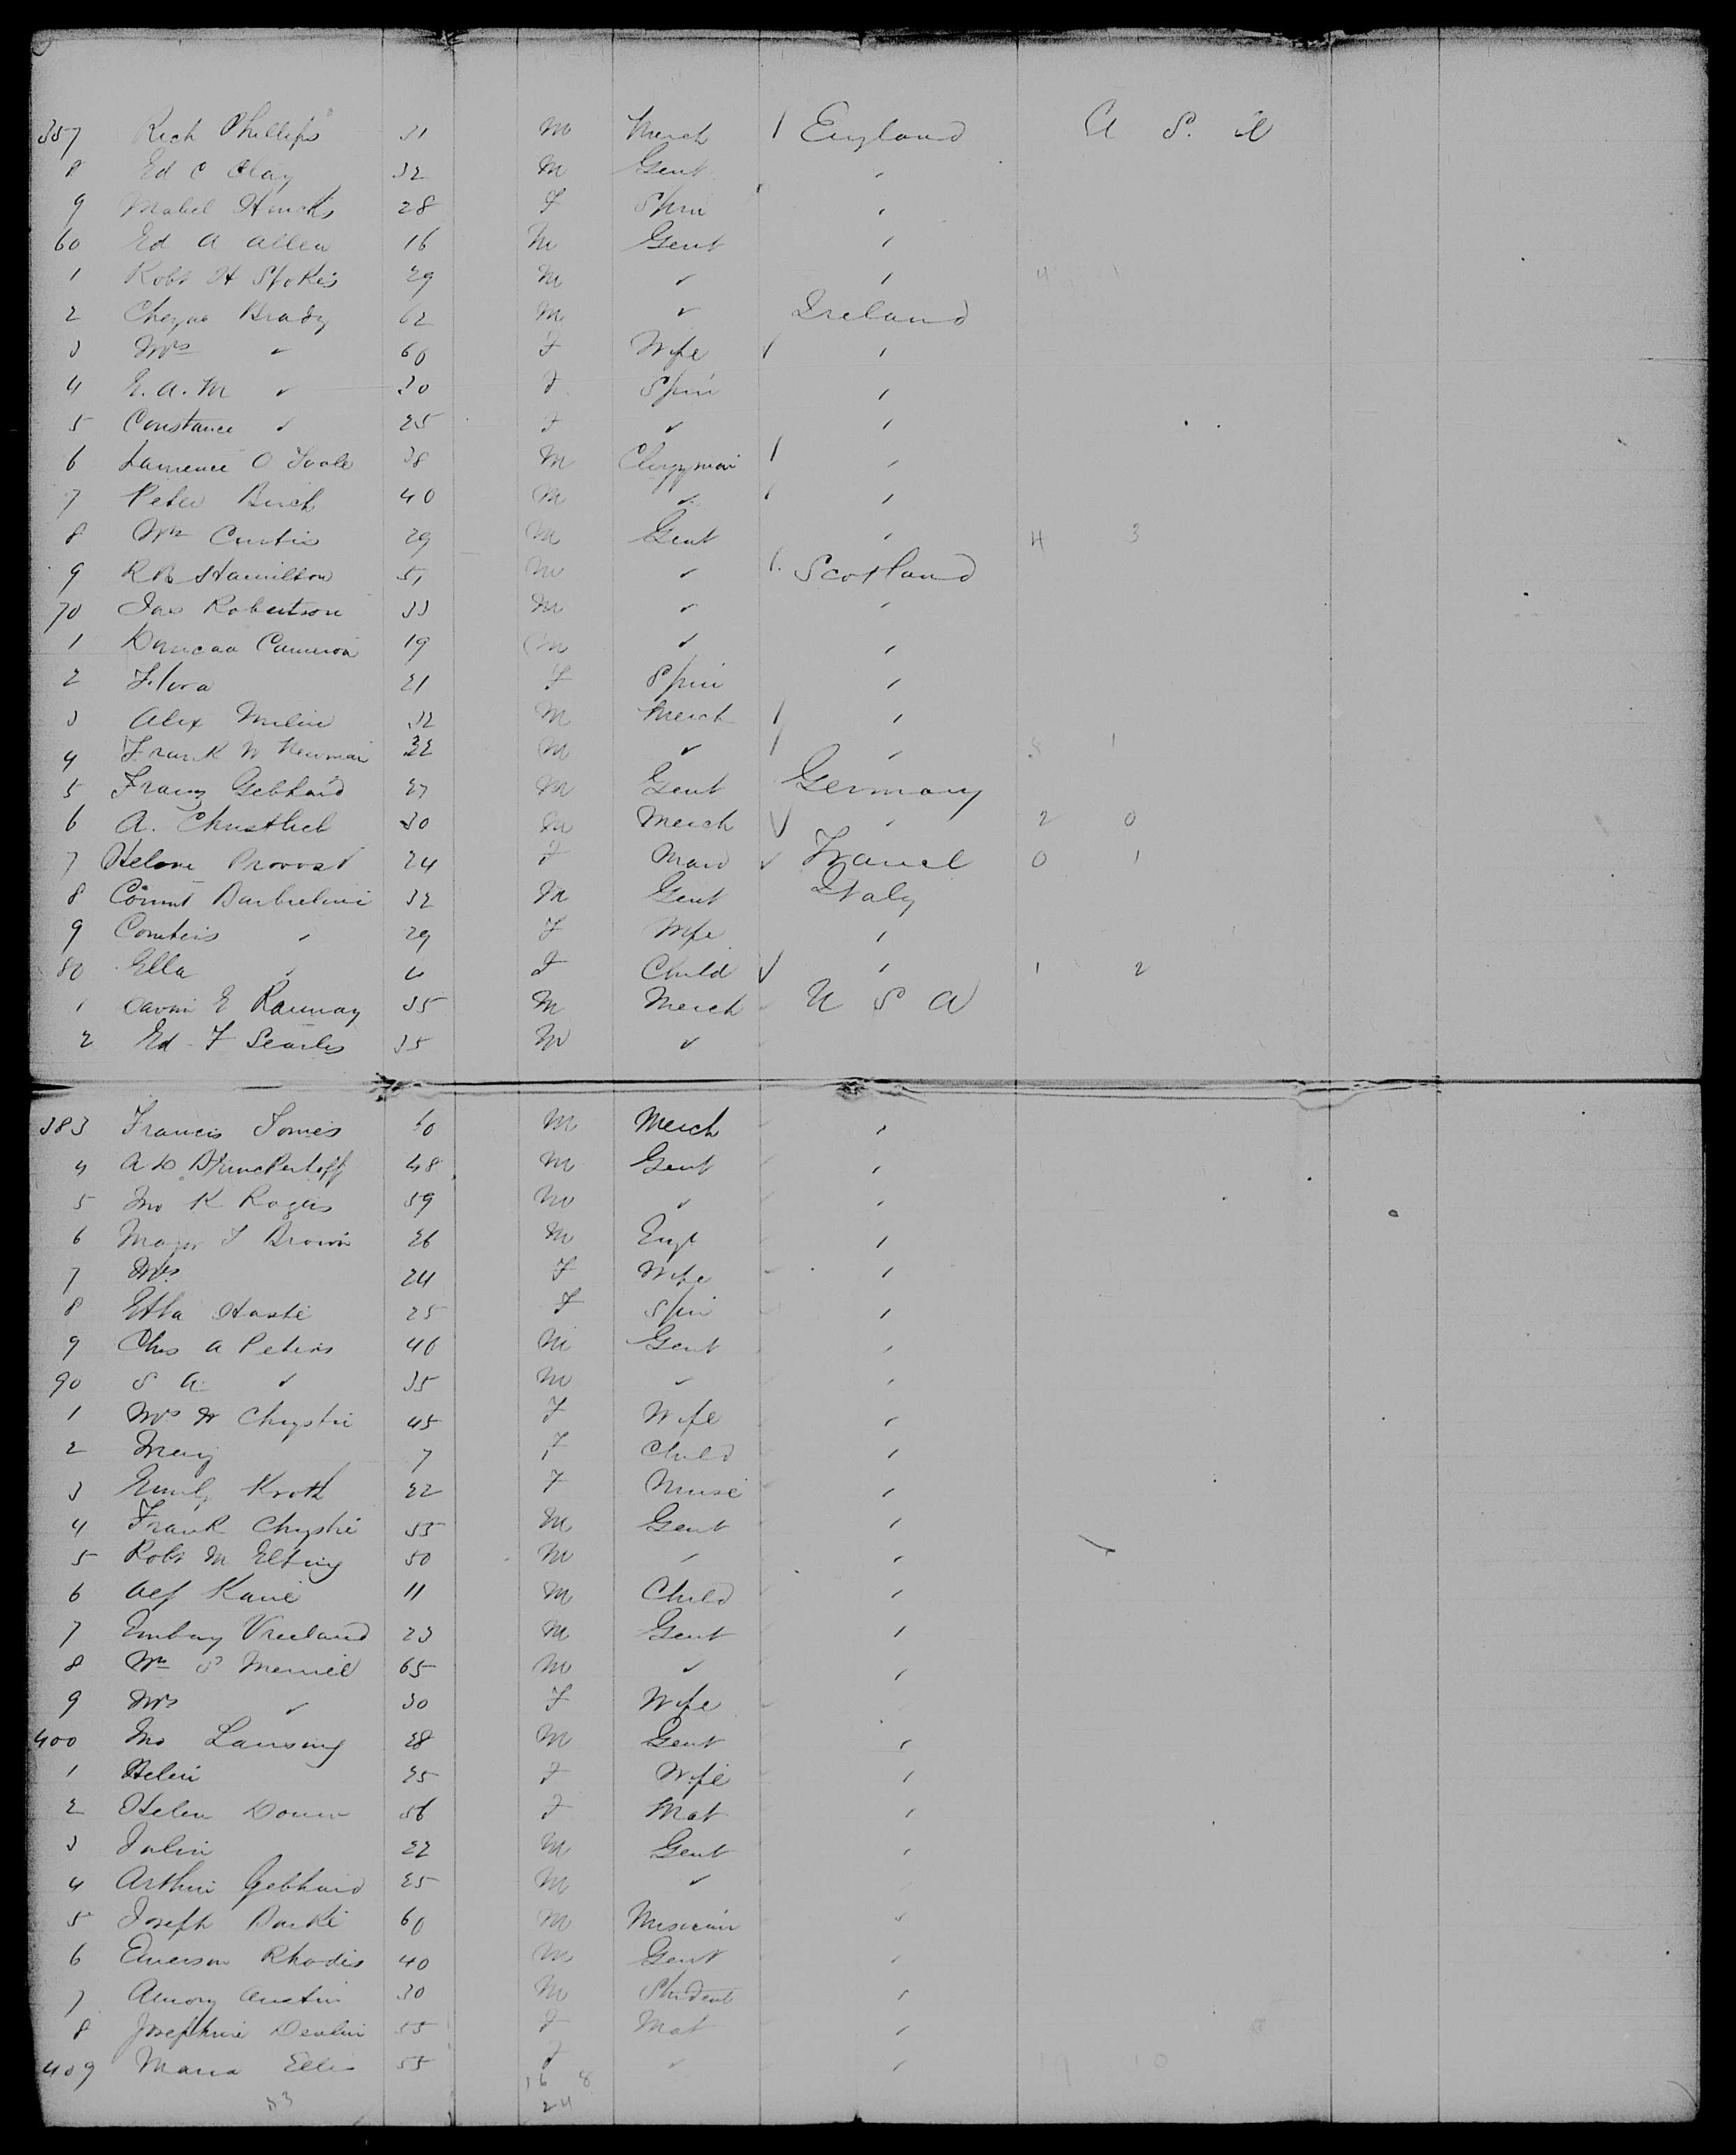 357 Rich Phillips 31 M Merch England U S A
8 Ed C Clay 32 M Gent "
9 Mabel Hincks 28 F Spin "
60 Ed A Allen 16 M Gent "
1 Robt H Stokes 29 M " " 4 1
2 Cheyne Brady 62 M " Ireland
3 Mrs " 60 F Wife "
4 E. A. M " 30 F Spin "
5 Constance " 25 F " "
6 Laurence O Toole 38 M Clergyman "
7 Peter Birch 40 M " "
8 Wm Curtis 29 M Gent " 4 3
9 R B Hamilton 51 M " Scotland
70 Jas Robertson 33 M " "
1 Duncan Cameron 19 M " "
2 Flora 21 F Spin "
3 Alex Milne 32 M Merch "
4 Frank W Newman 32 M " " 5 1
5 Franz Gebhard 27 M Gent Germany
6 A. Christlieb 30 M Merch " 2 0
7 Helene Provost 24 F Maid France 0 1
8 Count 32 M Gent Italy
9 Contess " 29 F Wife "
80 Ella " F Child " 1 2
1 E Ranway 35 M Merch U S A
2 Ed F Searles 35 M "
383 Francis Tomes 60 M Merch "
4 A D 48 M Gent "
5 Jno K Rogers 59 M " "
6 Major T Brown 26 M "
7 Mrs 24 F Wife "
8 Etta Hastie 25 F Spin "
9 Chas A Peters 46 M Gent "
90 S A " 35 M " "
1 Mrs W Chrystie 45 F Wife "
2 May 7 F Child "
3 Emily Kroth 22 F Nurse "
4 Frank Chrystie 55 M Gent "
5 Robt M Elting 50 M " "
6 Alf Kane 11 M Child "
7 Embury Vreeland 23 M Gent "
8 Wm S Merrill 65 M " "
9 Mrs " 30 F Wife
400 Jno Lansing 28 M Gent "
1 Helen 25 F Wife "
2 Helen Douw 56 F Mat "
3 22 M Gent "
4 Arthur Gebhard 25 M "
5 Joseph Burke 60 M Musician "
6 Emerson Rhodes 40 M Gent "
7 Amory Austin 30 M Student "
8 Josephine Devlin 55 F Mat "
409 Maria Ellis 55 F " " 19 10
16 8
53 24